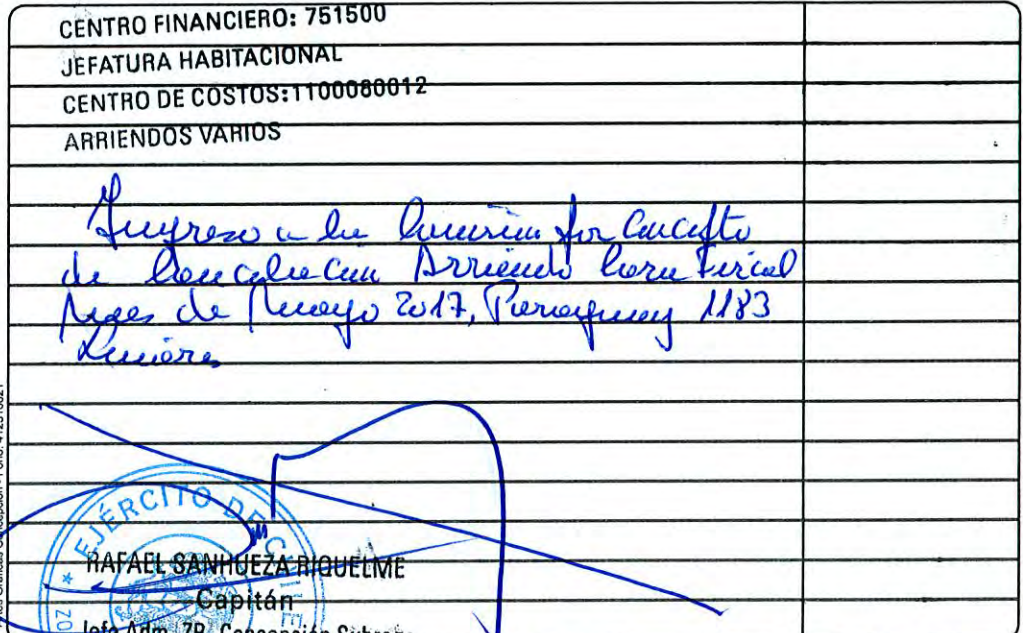 CENTRO FINANCIERO: 751500
JEFATURA HABITACIONAL
CENTRO DE COSTOS:1100080012
ARRIENDOS VARIOS
Ingreso a la por Concepto
de Arriendo Fiscal
de Mayo 2017, Paraguay 1183
EJÉRCITO DE CHILE
RAFAEL SANHUEZA RIQUELME
Capitán
Jefe Adm. ZB. Concepción Subrog